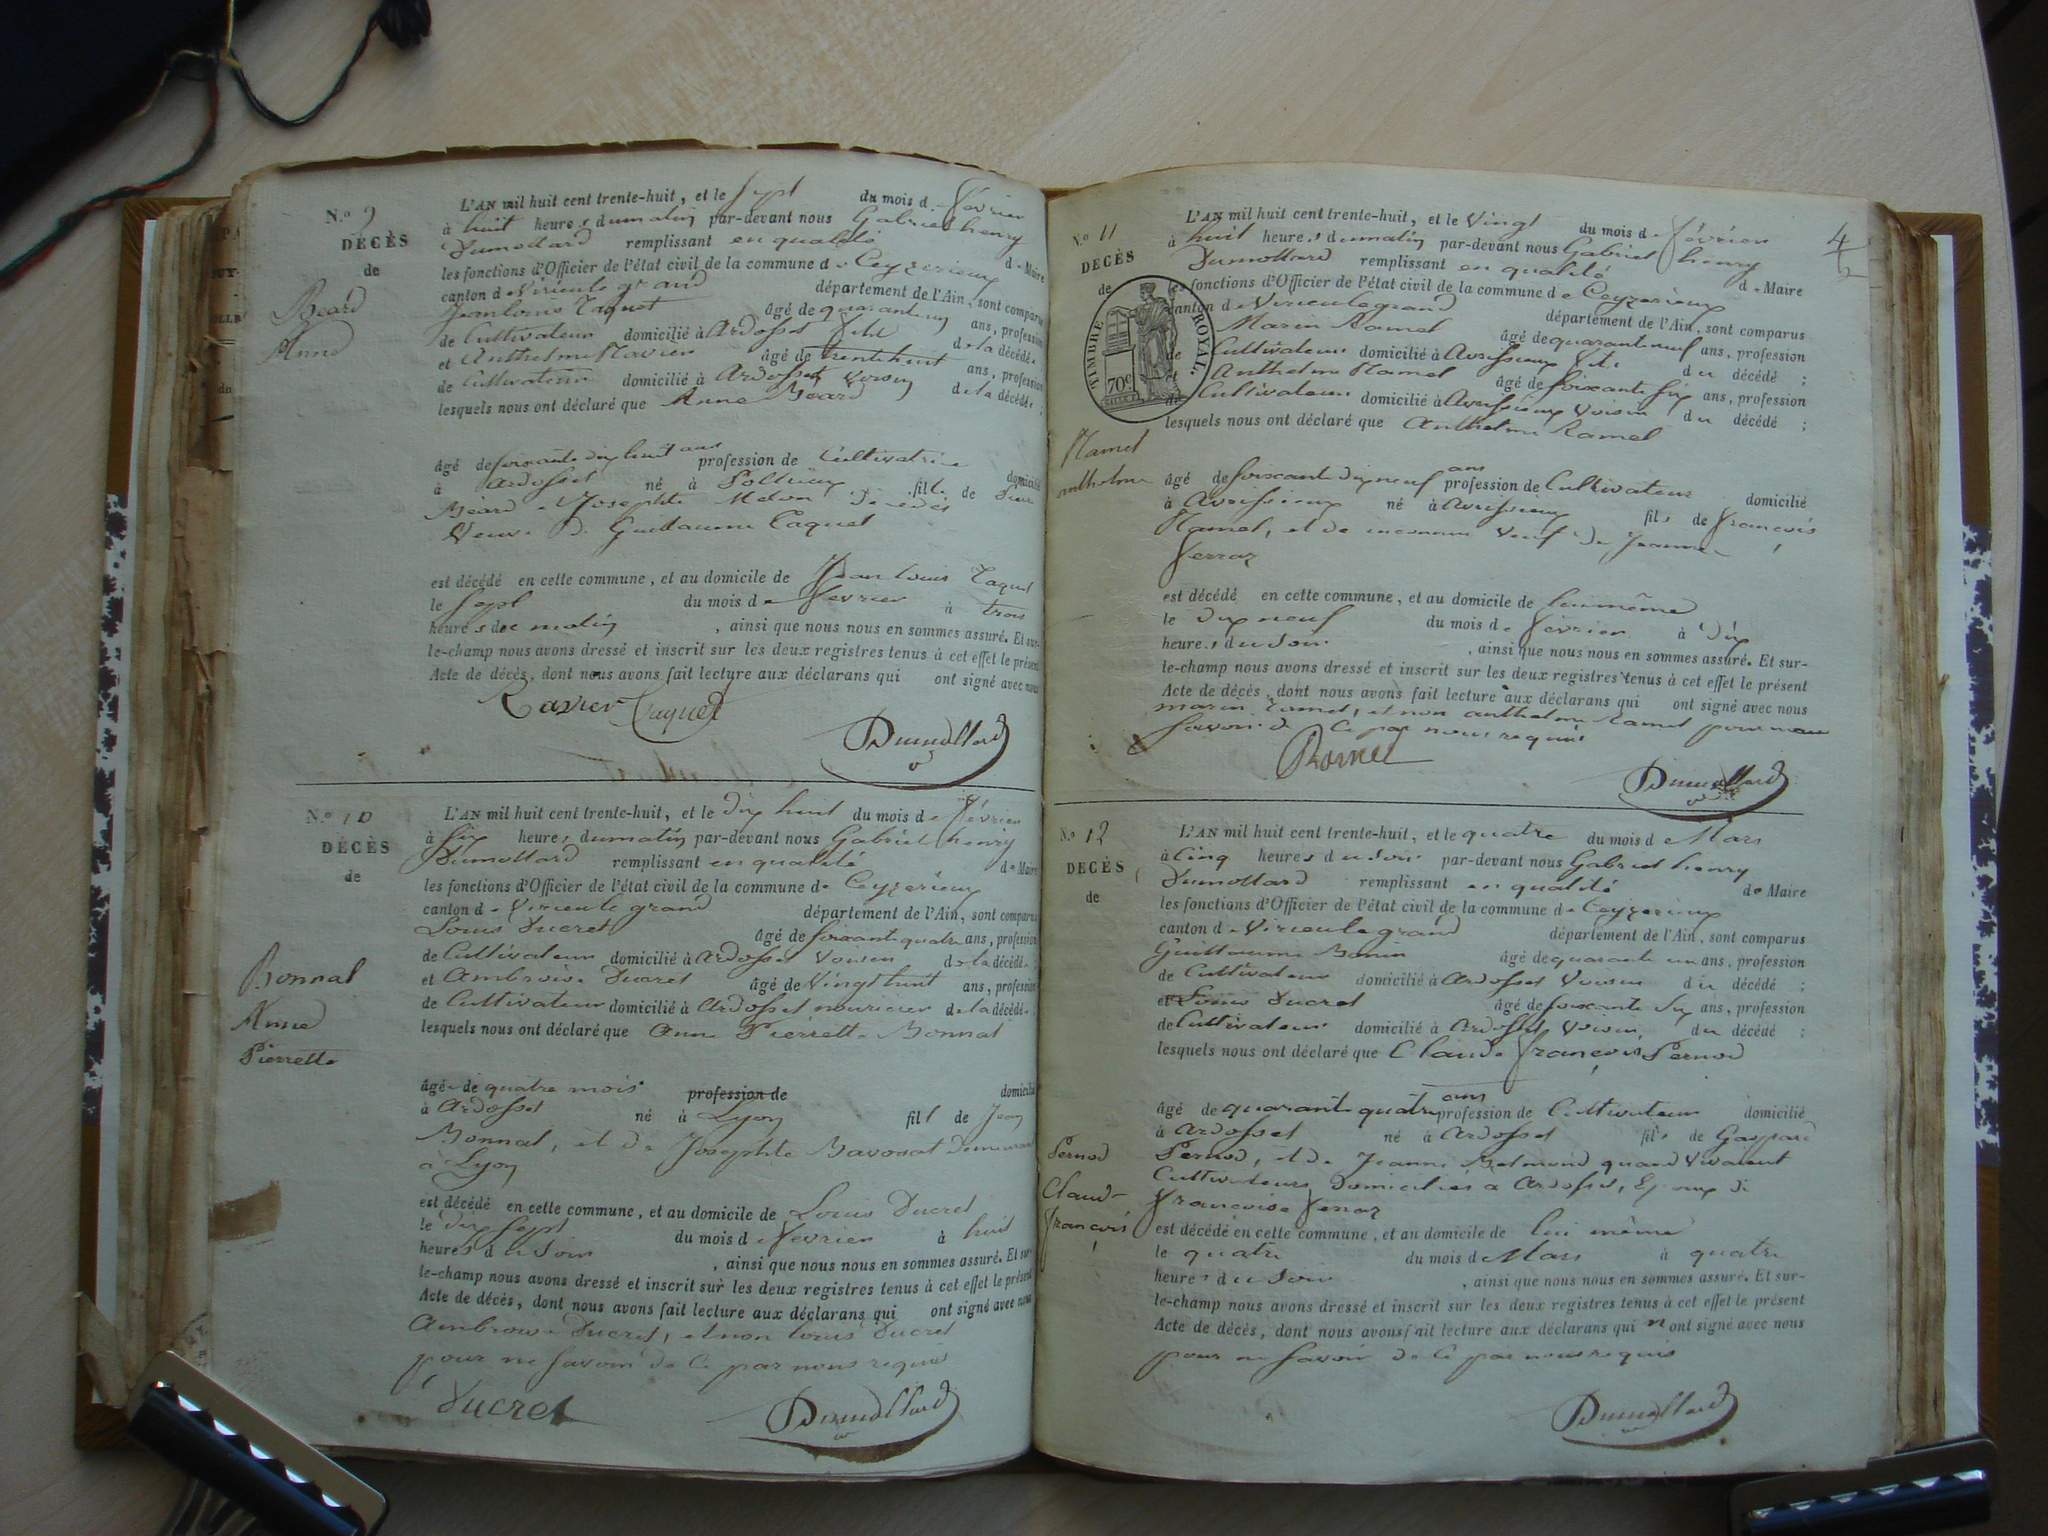 N.o 9
DÉCÈS
de
Béard
Anne
L'AN mil huit cent trente-huit, et le sept du mois de février
à huit heures du matin par-devant nous Gabriel henry
Dumollard remplissant en qualité de Maire
les fonctions d'Officier de l'état civil de la commune de Ceyzerieux
canton de Virieu le grand département de l'Ain, sont comparus
Jean louis Taquet âgé de quarante un ans, profession
de Cultivateur domicilié à Ardosset de la décédée
et Anthelme Ravier âgé de trente huit ans, profession
de Cultivateur domicilié à Ardosset voisin de la décédée ;
lesquels nous ont déclaré que Anne Béard
âgé de soixante dix huit ans profession de Cultivatrice domicilié
à Ardosset né à fille de Pierre
Béard et Josephte
Veuve de Guillaume Taquet
est décédé en cette commune, et au domicile de Jean louis Taquet
le sept du mois de février à trois
heures du matin , ainsi que nous nous en sommes assuré. Et sur-
le-champ nous avons dressé et inscrit sur les deux registres tenus à cet effet le présent
Acte de décès, dont nous avons fait lecture aux déclarans qui ont signé avec nous
Ravier Taquet
Dumollard
N.o 10
DÉCÈS
de
Bonnat
Anne
Pierrette
L'AN mil huit cent trente-huit, et le dix huit du mois de février
à six heures du matin par-devant nous Gabriel henry
Dumollard remplissant en qualité de Maire
les fonctions d'Officier de l'état civil de la commune de Ceyzerieux
canton de Virieu le grand département de l'Ain, sont comparus
Louis Ducret âgé de soixante quatre ans, profession
de Cultivateur domicilié à Ardosset voisin de la décédée ;
et Ambroise Ducret âgé de vingt huit ans, profession
de Cultivateur domicilié à Ardosset nouricier de la décédée ;
lesquels nous ont déclaré que Anne Pierrette Bonnat
âgé de quatre mois profession de domicilié
à Ardosset né à Lyon fille de Jean
Bonnat, et de Josephte Bavosat Demeurant
à Lyon
est décédé en cette commune, et au domicile de Louis Ducret
le dix sept du mois de février à huit
heures du soir , ainsi que nous nous en sommes assuré. Et sur-
le-champ nous avons dressé et inscrit sur les deux registres tenus à cet effet le présent
Acte de décès, dont nous avons fait lecture aux déclarans qui ont signé avec nous
Ambroise Ducret, et non louis Ducret
pour ne savoir de ce par nous requis
Ducret
Dumollard
4
N.o 11
DÉCÈS
de
TIMBRE ROYAL.
70c
Ramel
anthelme
L'AN mil huit cent trente-huit, et le vingt du mois de février
à huit heures du matin par-devant nous Gabriel henry
Dumollard remplissant en qualité de Maire
les fonctions d'Officier de l'état civil de la commune de Ceyzerieux
canton de Virieu le grand département de l'Ain, sont comparus
Marin Ramel âgé de quarante neuf ans, profession
de Cultivateur domicilié à Avrissieux fils du décédé ;
et Anthelme Ramel âgé de soixante six ans, profession
de Cultivateur domicilié à Avrissieux voisin du décédé ;
lesquels nous ont déclaré que Anthelme Ramel
âgé de soixante dix neuf ans profession de Cultivateur domicilié
à Avrissieux né à Avrissieux fils de françois
Ramel, et de inconnue veuf de Jeanne
ferraz
est décédé en cette commune, et au domicile de lui même
le dix neuf du mois de février à dix
heures du soir , ainsi que nous nous en sommes assuré. Et sur-
le-champ nous avons dressé et inscrit sur les deux registres tenus à cet effet le présent
Acte de décès, dont nous avons fait lecture aux déclarans qui ont signé avec nous
marin Ramel, et non anthelme Ramel pour ne
savoir de ce par nous requis
Ramel
Dumollard
N.o 12
DÉCÈS
de
Pernod
Claude
françois
L'AN mil huit cent trente-huit, et le quatre du mois de Mars
à Cinq heures du soir par-devant nous Gabriel henry
Dumollard remplissant en qualité de Maire
les fonctions d'Officier de l'état civil de la commune de Ceyzerieux
canton de Virieu le grand département de l'Ain, sont comparus
Guillaume Bonin âgé de quarante un ans, profession
de Cultivateur domicilié à Ardosset voisin du décédé ;
et Louis Ducret âgé de soixante six ans, profession
de Cultivateur domicilié à Ardosset voisin du décédé ;
lesquels nous ont déclaré que Claude françois Pernod
âgé de quarante quatre ans profession de Cultivateur domicilié
à Ardosset né à Ardosset fils de Gaspard
Pernod, et de Jeanne Belmond quand vivaient
Cultivateurs domiciliés à Ardosset, Epoux de
françoise
est décédé en cette commune, et au domicile de lui même
le quatre du mois de Mars à quatre
heures du soir , ainsi que nous nous en sommes assuré. Et sur-
le-champ nous avons dressé et inscrit sur les deux registres tenus à cet effet le présent
Acte de décès, dont nous avons fait lecture aux déclarans qui n'ont signé avec nous
pour ne savoir de ce par nous requis
Dumollard